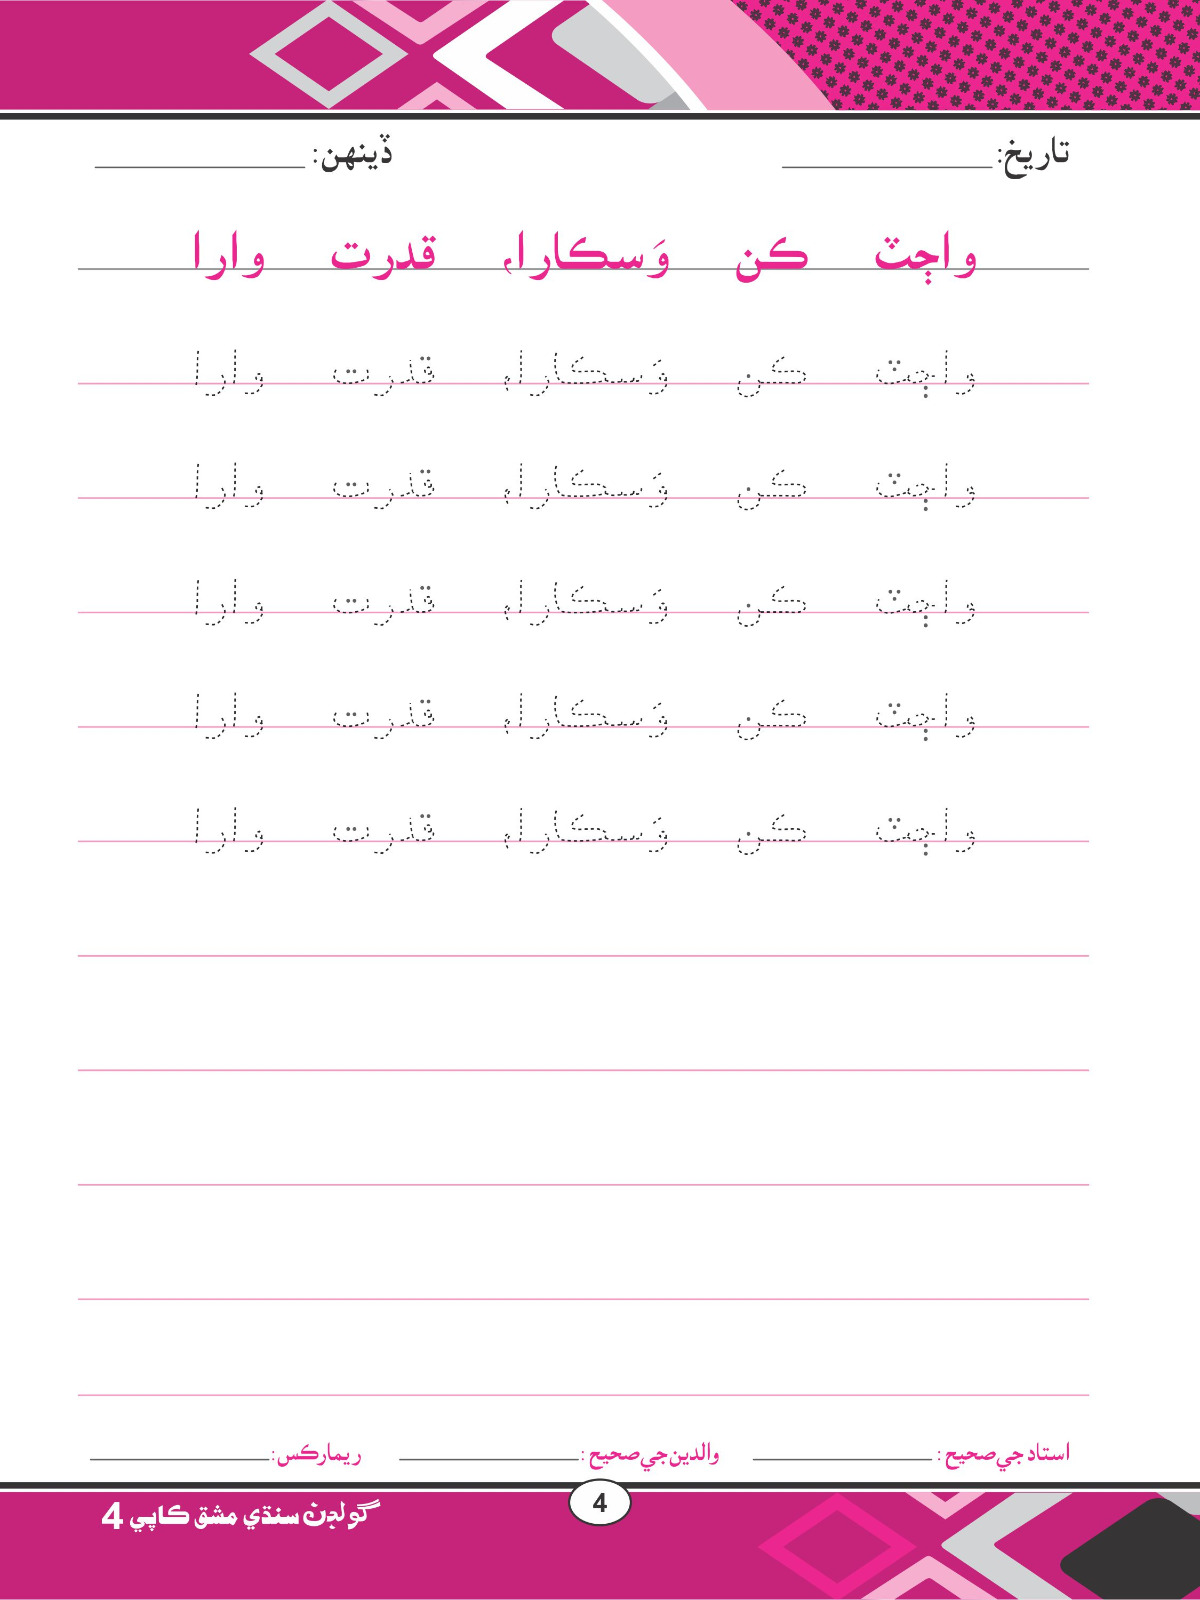 تاريخ: ڏينهن:
واڄٽ ڪن وَسڪارا، قدرت وارا
واڄٽ ڪن وَسڪارا، قدرت وارا
واڄٽ ڪن وَسڪارا، قدرت وارا
واڄٽ ڪن وَسڪارا، قدرت وارا
واڄٽ ڪن وَسڪارا، قدرت وارا
واڄٽ ڪن وَسڪارا، قدرت وارا
استاد جي صحيح: والدين جي صحيح: ريمارڪس:
4
گولڊن سنڌي مشق ڪاپي 4